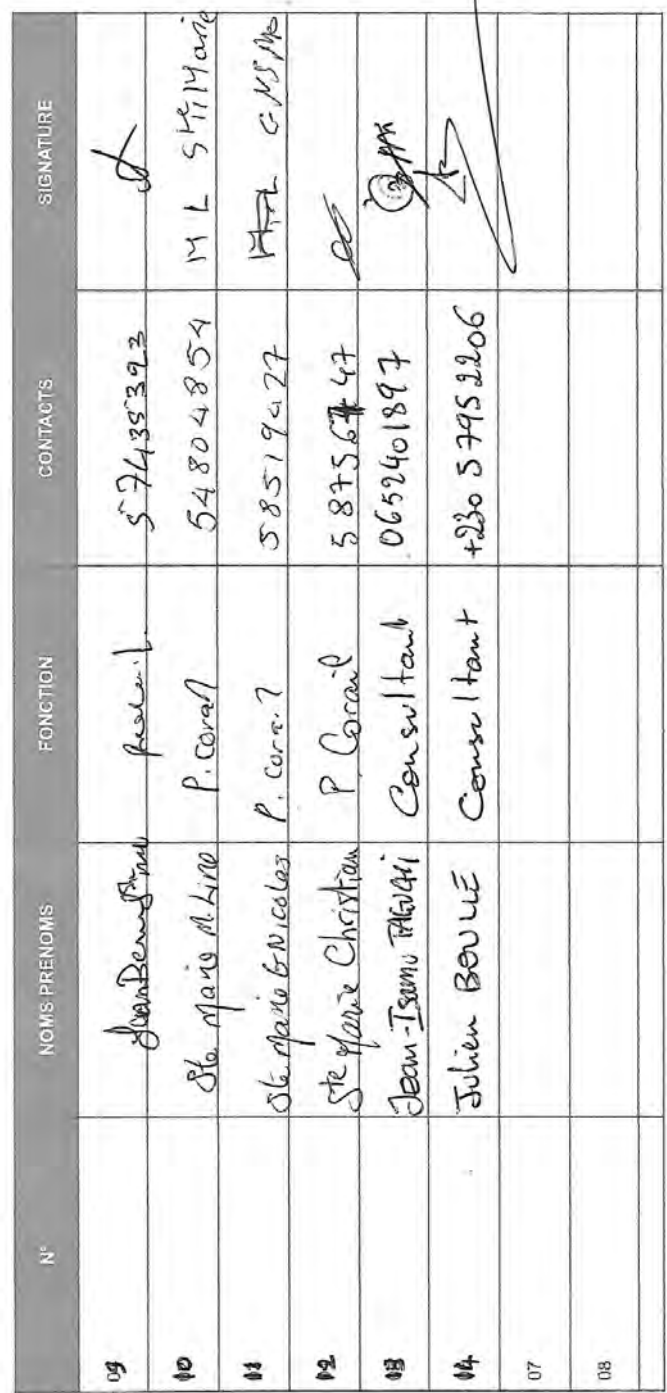 N° NOMS PRENOMS FONCTION CONTACTS SIGNATURE
09 57435393
10 Ste Marie M. Line P. Corail 54804854 M L Ste Marie
11 Ste Marie G Nicolas P. Corail 58519427
12 Ste Marie Christian P. Corail 5875647
13 Jean-Isamu TAGUCHI Consultant 0652401897
14 Julien BOULLE Consultant +230 57952206
07
08